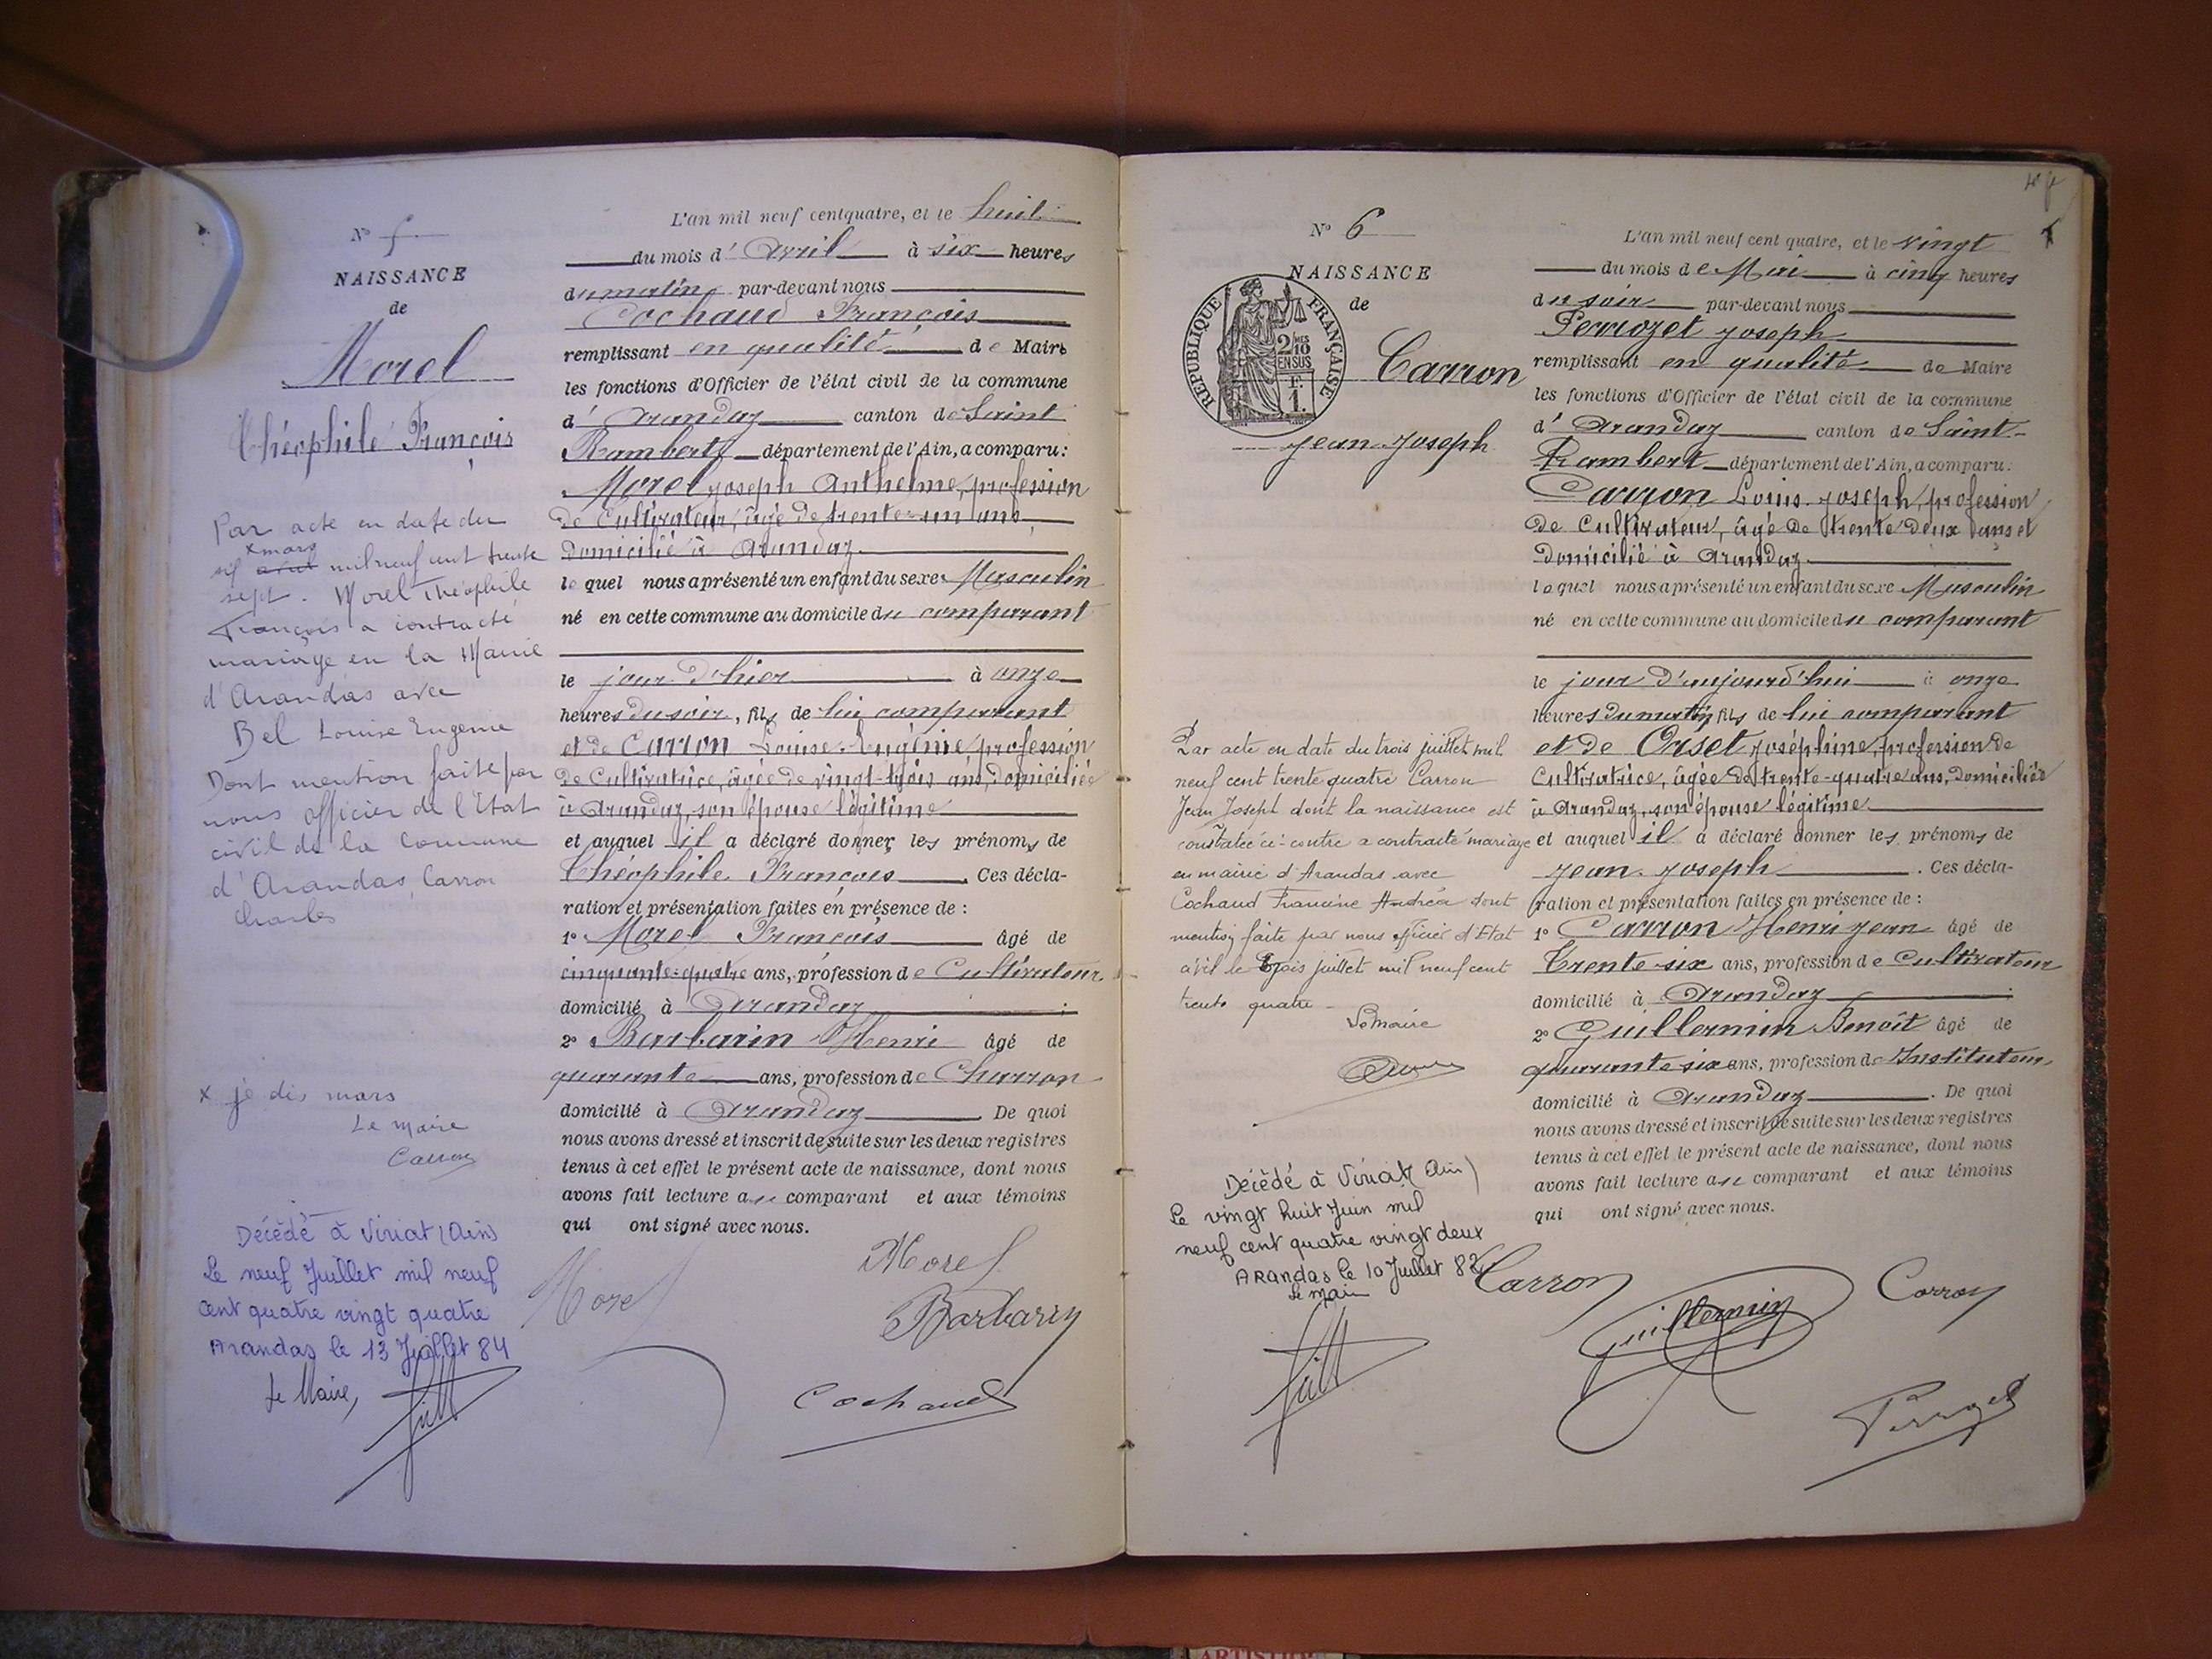 N° 5
NAISSANCE
de
Morel
Théophile François
Par acte en date du
x mars
six avril mil neuf cent trente
sept. Morel Théophile
François a contracté
mariage en la Mairie
d'Arandas avec
Bel Louise Eugénie
Dont mention faite par
nous officier de l'Etat
civil de la Commune
d'Arandas, Carron
Charles
x je dis mars
Le Maire
Carron
Décédé à Viriat (Ain)
Le neuf Juillet mil neuf
cent quatre vingt quatre
Arandas le 13 Juillet 84
Le Maire,
L'an mil neuf cent quatre, et le huit
du mois d'Avril à six heures
du matin par-devant nous
Cochaud François
remplissant en qualité de Maire
les fonctions d'Officier de l'état civil de la commune
d'Arandaz canton de Saint
Rambert département de l'Ain, a comparu:
Morel Joseph Anthelme, profession
de Cultivateur, âgé de trente-un ans
domicilié à Arandaz
lequel nous a présenté un enfant du sexe Masculin
né en cette commune au domicile du comparant
le jour d'hier à onze
heures du soir, fils de lui comparant
et de Carron Louise Eugénie, profession
de Cultivatrice, âgée de vingt-trois ans, domiciliée
à Arandaz, son épouse légitime
et auquel il a déclaré donner les prénoms de
Théophile François. Ces décla-
ration et présentation faites en présence de :
1° Morel François âgé de
cinquante-quatre ans, profession de Cultivateur
domicilié à Arandaz ;
2° Barbarin Henri âgé de
quarante ans, profession de Charron
domicilié à Arandaz. De quoi
nous avons dressé et inscrit de suite sur les deux registres
tenus à cet effet le présent acte de naissance, dont nous
avons fait lecture au comparant et aux témoins
qui ont signé avec nous.
Morel
Morel
Barbarin
Cochaud
N° 6
NAISSANCE
de
REPUBLIQUE FRANÇAISE
2/10
EN SUS
1 F.
Carron
Jean-Joseph
Par acte en date du trois juillet mil
neuf cent trente quatre Carron
Jean Joseph dont la naissance est
constatée ci-contre a contracté mariage
en mairie d'Arandas avec
Cochaud Francine Andréa dont
mention faite par nous officier d'Etat
civil le trois juillet mil neuf cent
trente quatre
Le Maire
Décédé à Viriat (Ain)
Le vingt huit Juin mil
neuf cent quatre vingt deux
Arandas le 10 Juillet 82
Le Maire
L'an mil neuf cent quatre, et le vingt
du mois de Mai à cinq heures
du soir par-devant nous
Perrozet Joseph
remplissant en qualité de Maire
les fonctions d'Officier de l'état civil de la commune
d'Arandaz canton de Saint-
Rambert département de l'Ain, a comparu:
Carron Louis Joseph, profession
de Cultivateur, âgé de trente deux ans et
domicilié à Arandaz
lequel nous a présenté un enfant du sexe Masculin
né en cette commune au domicile du comparant
le jour d'aujourd'hui à onze
heures du matin, fils de lui comparant
et de Orset Joséphine, profession de
Cultivatrice, âgée de trente-quatre ans, domiciliée
à Arandaz, son épouse légitime
et auquel il a déclaré donner les prénoms de
Jean-Joseph. Ces décla-
ration et présentation faites en présence de :
1° Carron Henri Jean âgé de
Trente-six ans, profession de Cultivateur
domicilié à Arandaz ;
2° Guillermin Benoît âgé de
quarante-six ans, profession de Instituteur
domicilié à Arandaz. De quoi
nous avons dressé et inscrit de suite sur les deux registres
tenus à cet effet le présent acte de naissance, dont nous
avons fait lecture au comparant et aux témoins
qui ont signé avec nous.
Carron
Guillermin
Carron
Perrozet